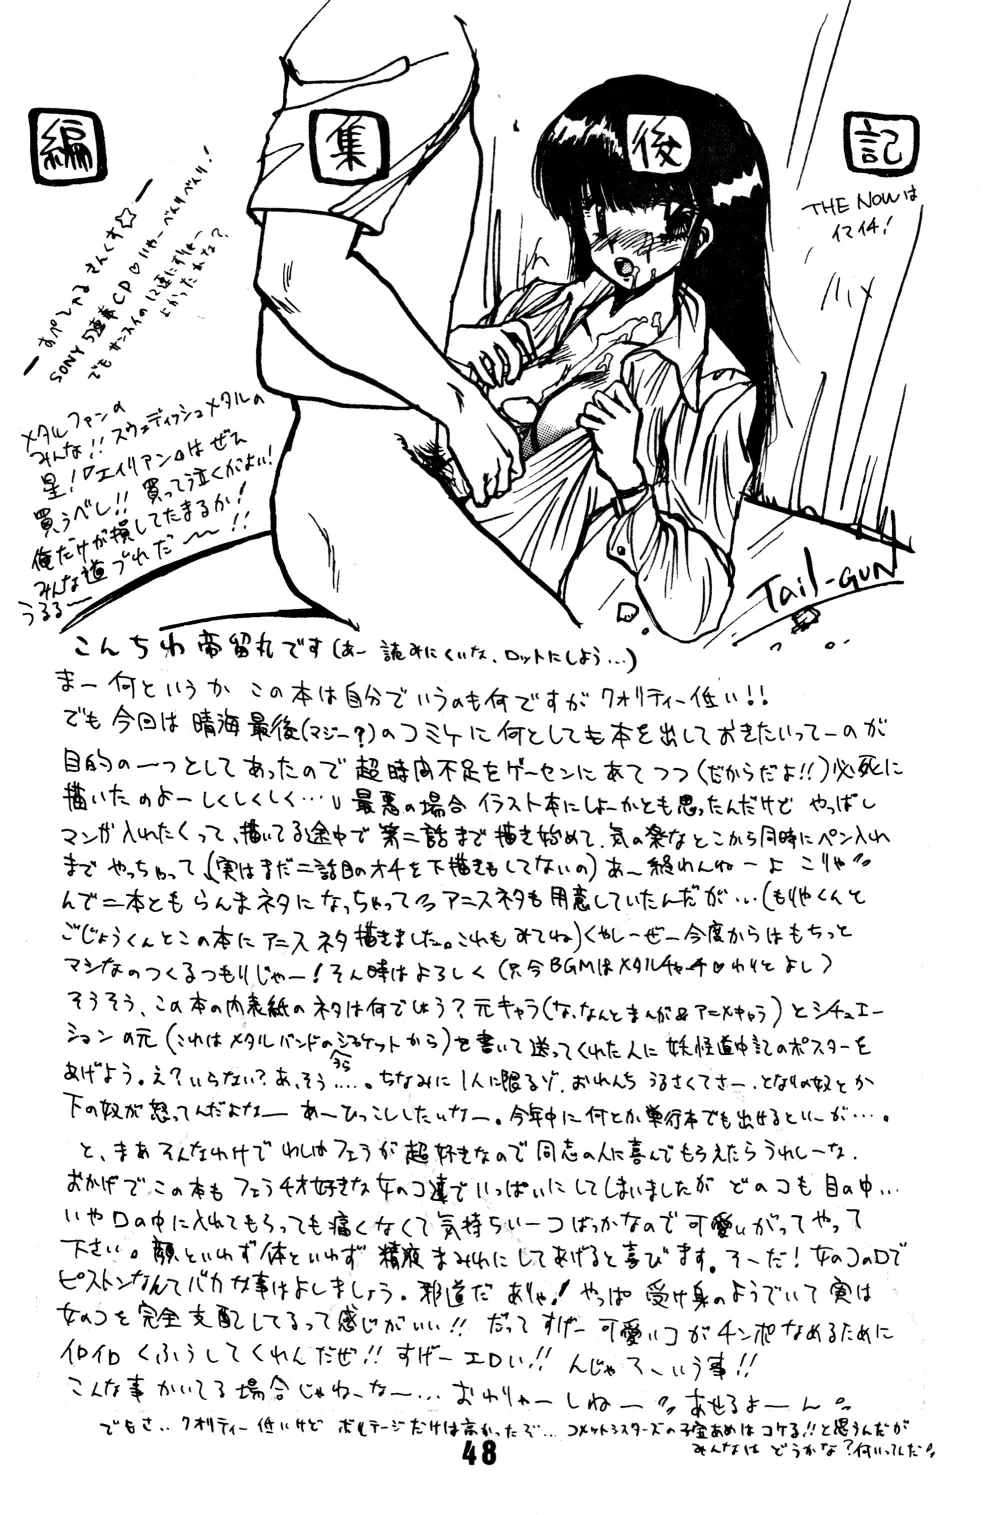 編集後記
THE NOWは
イマイチ!
すぺしゃる さんくす☆
SONY 5連奏CP♡いやーべんりべんり!
でもサンスイの12連にすりゃー
よかったかなー?
メタルファンの
みんな!!スウェディッシュメタルの
星!『エイリアン』はぜひ
買うべし!!買って泣くがよい!
俺だけが損してたまるか!
みんな道づれだ〜!!
うるる〜
Tail-GUN
こんちわ帝留丸です(あー 読みにくいな、ロットにしよう…)
まー何というか この本は自分でいうのも何ですが クオリティー低い!!
でも今回は晴海最後(マジー?)のコミケに何としても本を出しておきたいってーのが
目的の一つとしてあったので超時間不足をゲーセンにあてつつ(だからだよ!!)必死に
描いたのよーしくしくしく… 最悪の場合イラスト本にしよーかとも思ったんだけど やっぱし
マンガ入れたくって、描いてる途中で第二話まで描き始めて、気の楽なとこから同時にペン入れ
までやっちゃって、(実はまだ二話目のオチを下描きもしてないの)あ〜終わんねーよ こりゃ
んで二本ともらんまネタになっちゃって アニスネタも用意していたんだが…(もりやくんと
ごじょうくんとこの本にアニスネタ描きました。これもみてね)くやしーぜー今度からはもちっと
マシなのつくるつもりじゃー!そん時はよろしく(只今BGMはメタルチャーチ♡わりとよし)
そうそう、この本の内表紙のネタは何でしょう?元キャラ(な、なんとまんが&アニメキャラ)とシチュエー
ションの元(これはメタルバンドのジャケットから)を書いて送ってくれた人に妖怪道中記のポスターを
あげよう。え?いらない?あ、そう……。ちなみに1人に限るゾ。おれんちうるさくてさー、となりの奴とか
下の奴が怒ってんだよなー あーひっこししたいなー。今年中に何とか単行本でも出せるといーが…。
と、まあそんなわけで わしはフェラが超好きなので同志の人に喜んでもらえたらうれしーな。
おかげでこの本もフェラチオ好きな女のコ達でいっぱいにしてしまいましたが どのコも目の中…
いや口の中に入れてもらっても痛くなくて気持ちいーコばっかなので可愛いがってやって
下さい。顔といわず体といわず精液まみれにしてあげると喜びます。そーだ!女のコの口で
ピストンなんてバカな事はよしましょう。邪道だありゃ!やっぱ受け身のようでいて実は
女のコを完全支配してるって感じがいい!!だってすげー可愛いコがチンポなめるために
イロイロくふうしてくれんだぜ!!すげーエロい!!んじゃて、いう事!!
こんな事かいてる場合じゃねーなー…おわりゃーしねー あせるよーん
でもさ‥クオリティー低いけどボルテージだけは高かったぞ…コメットシスターズの子宝あめはコケる!!と思うんだが
みんなは どうかな?何いってんだ
48